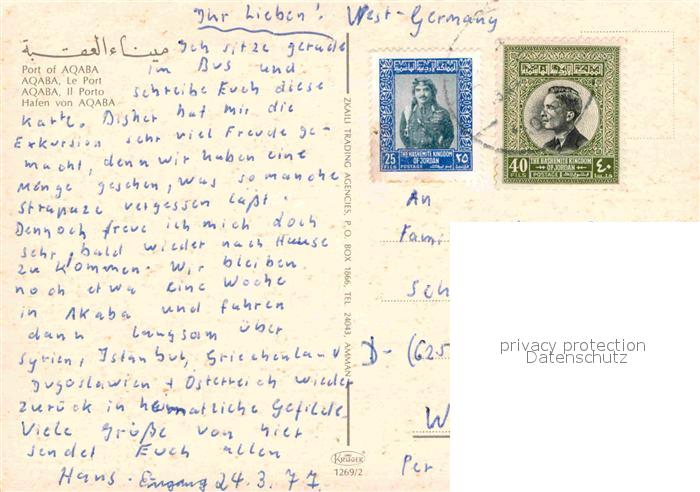 Ihr Lieben! West-Germany
ميناء العقبة
Port of AQABA
AQABA, Le Port
AQABA, Il Porto
Hafen von AQABA
Ich sitze gerade
im Bus und
schreibe Euch diese
Karte. Bisher hat mir die
Exkursion sehr viel Freude ge-
macht, denn wir haben eine
Menge gesehen, was so manche
Strapaze vergessen läßt.
Dennoch freue ich mich doch
sehr, bald wieder nach Hause
zu kommen. Wir bleiben
noch etwa eine Woche
in Akaba und fahren
dann langsam über
Syrien, Istanbul, Griechenland
Jugoslawien + Österreich wieder
zurück in heimatliche Gefilde.
Viele Grüße von hier
sendet Euch allen
Hans. Eingang 24.3.77.
ZKAILL TRADING AGENCIES, P.O. BOX 1866, TEL 24043, AMMAN
KRÜGER
1269/2
المملكة الأردنية الهاشمية
25 FILS
THE HASHEMITE KINGDOM
OF JORDAN
POSTAGE
٢٥
المملكة الأردنية الهاشمية
40 FILS
THE HASHEMITE KINGDOM
OF JORDAN
POSTAGE
٤٠
An
Fami
Sch
D- (625
W
Per
privacy protection
Datenschutz